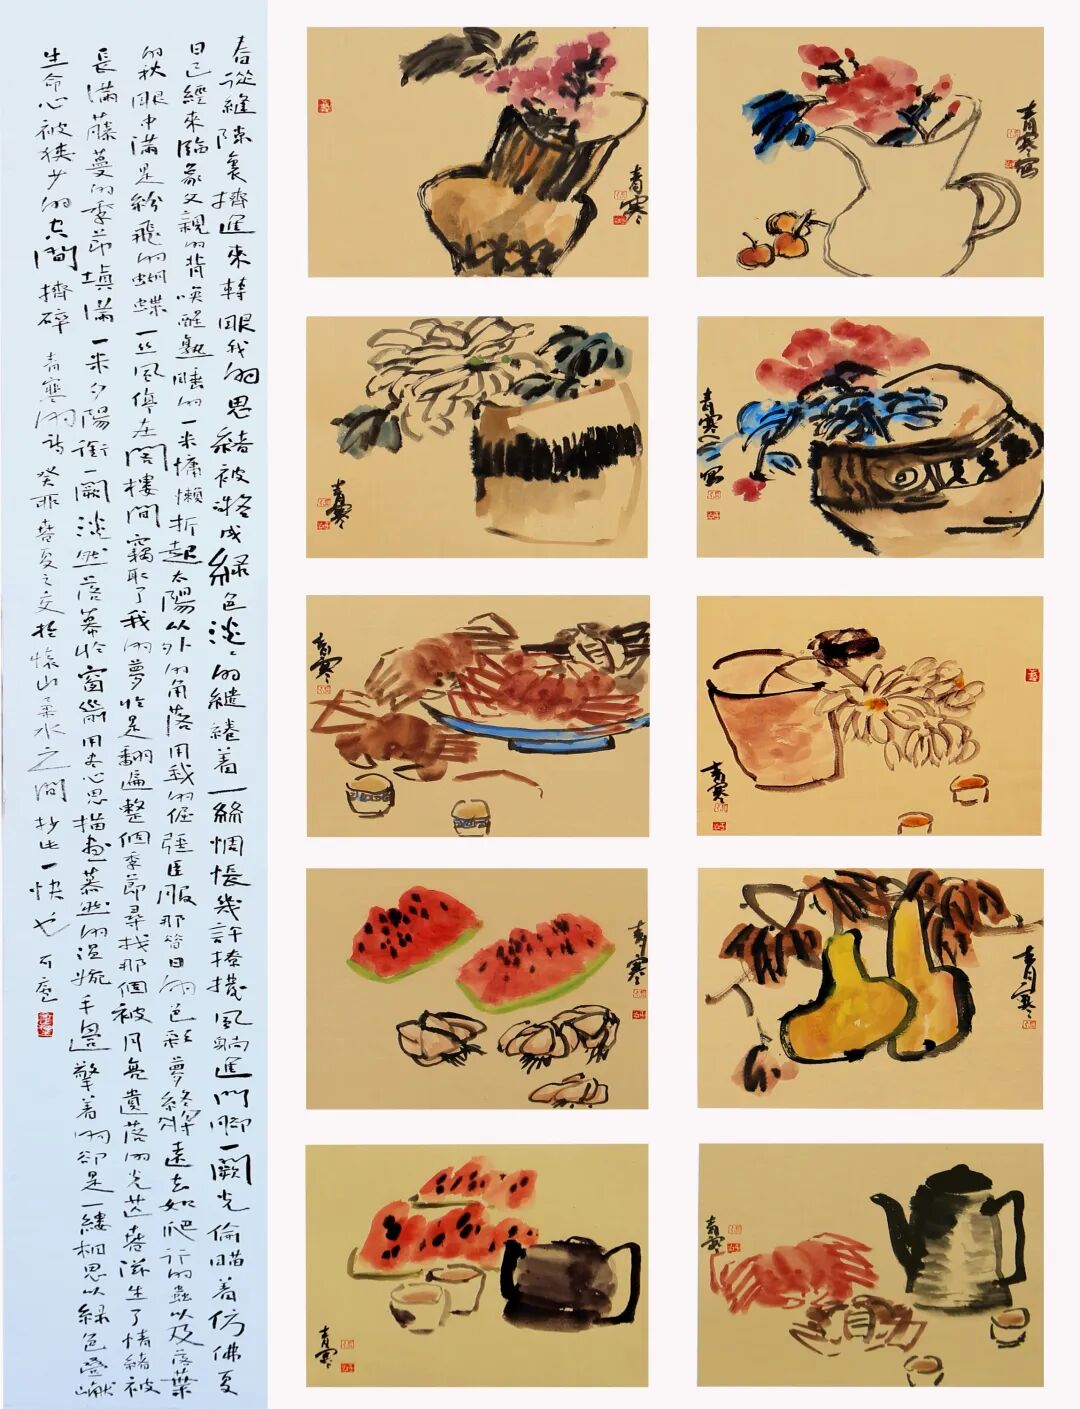 春從縫隙裏擠進來轉眼我的思緒被漆成綠色淡淡的繾綣着一絲惆悵幾許撩撥風躺進門腳一闕光偷瞄着仿佛夏
日已經來臨象父親的背喚醒熟睡的一米慵懶折起太陽以外的角落用我的倔强臣服那日的色彩夢終遠去如爬行的蟲以及落葉
的秋眼中滿是紛飛的蝴蝶一丝風停在閣樓間竊取了我的夢於是翻遍整個季節尋找那個被月亮遺落的光芒滋生了情緒被
長滿藤蔓的季節填滿一米夕陽銜一闕淡然落幕於窗前用盡心思描畫慕然的温婉手邊擎着的卻是一縷相思以綠色
生命心被狹少的空間擠碎 青寒的詩癸卯春夏之交於懷山柔水之間抄此一快也
青寒
青寒寫
青寒
青寒寫
青寒
青寒
青寒
青寒
青寒
青寒